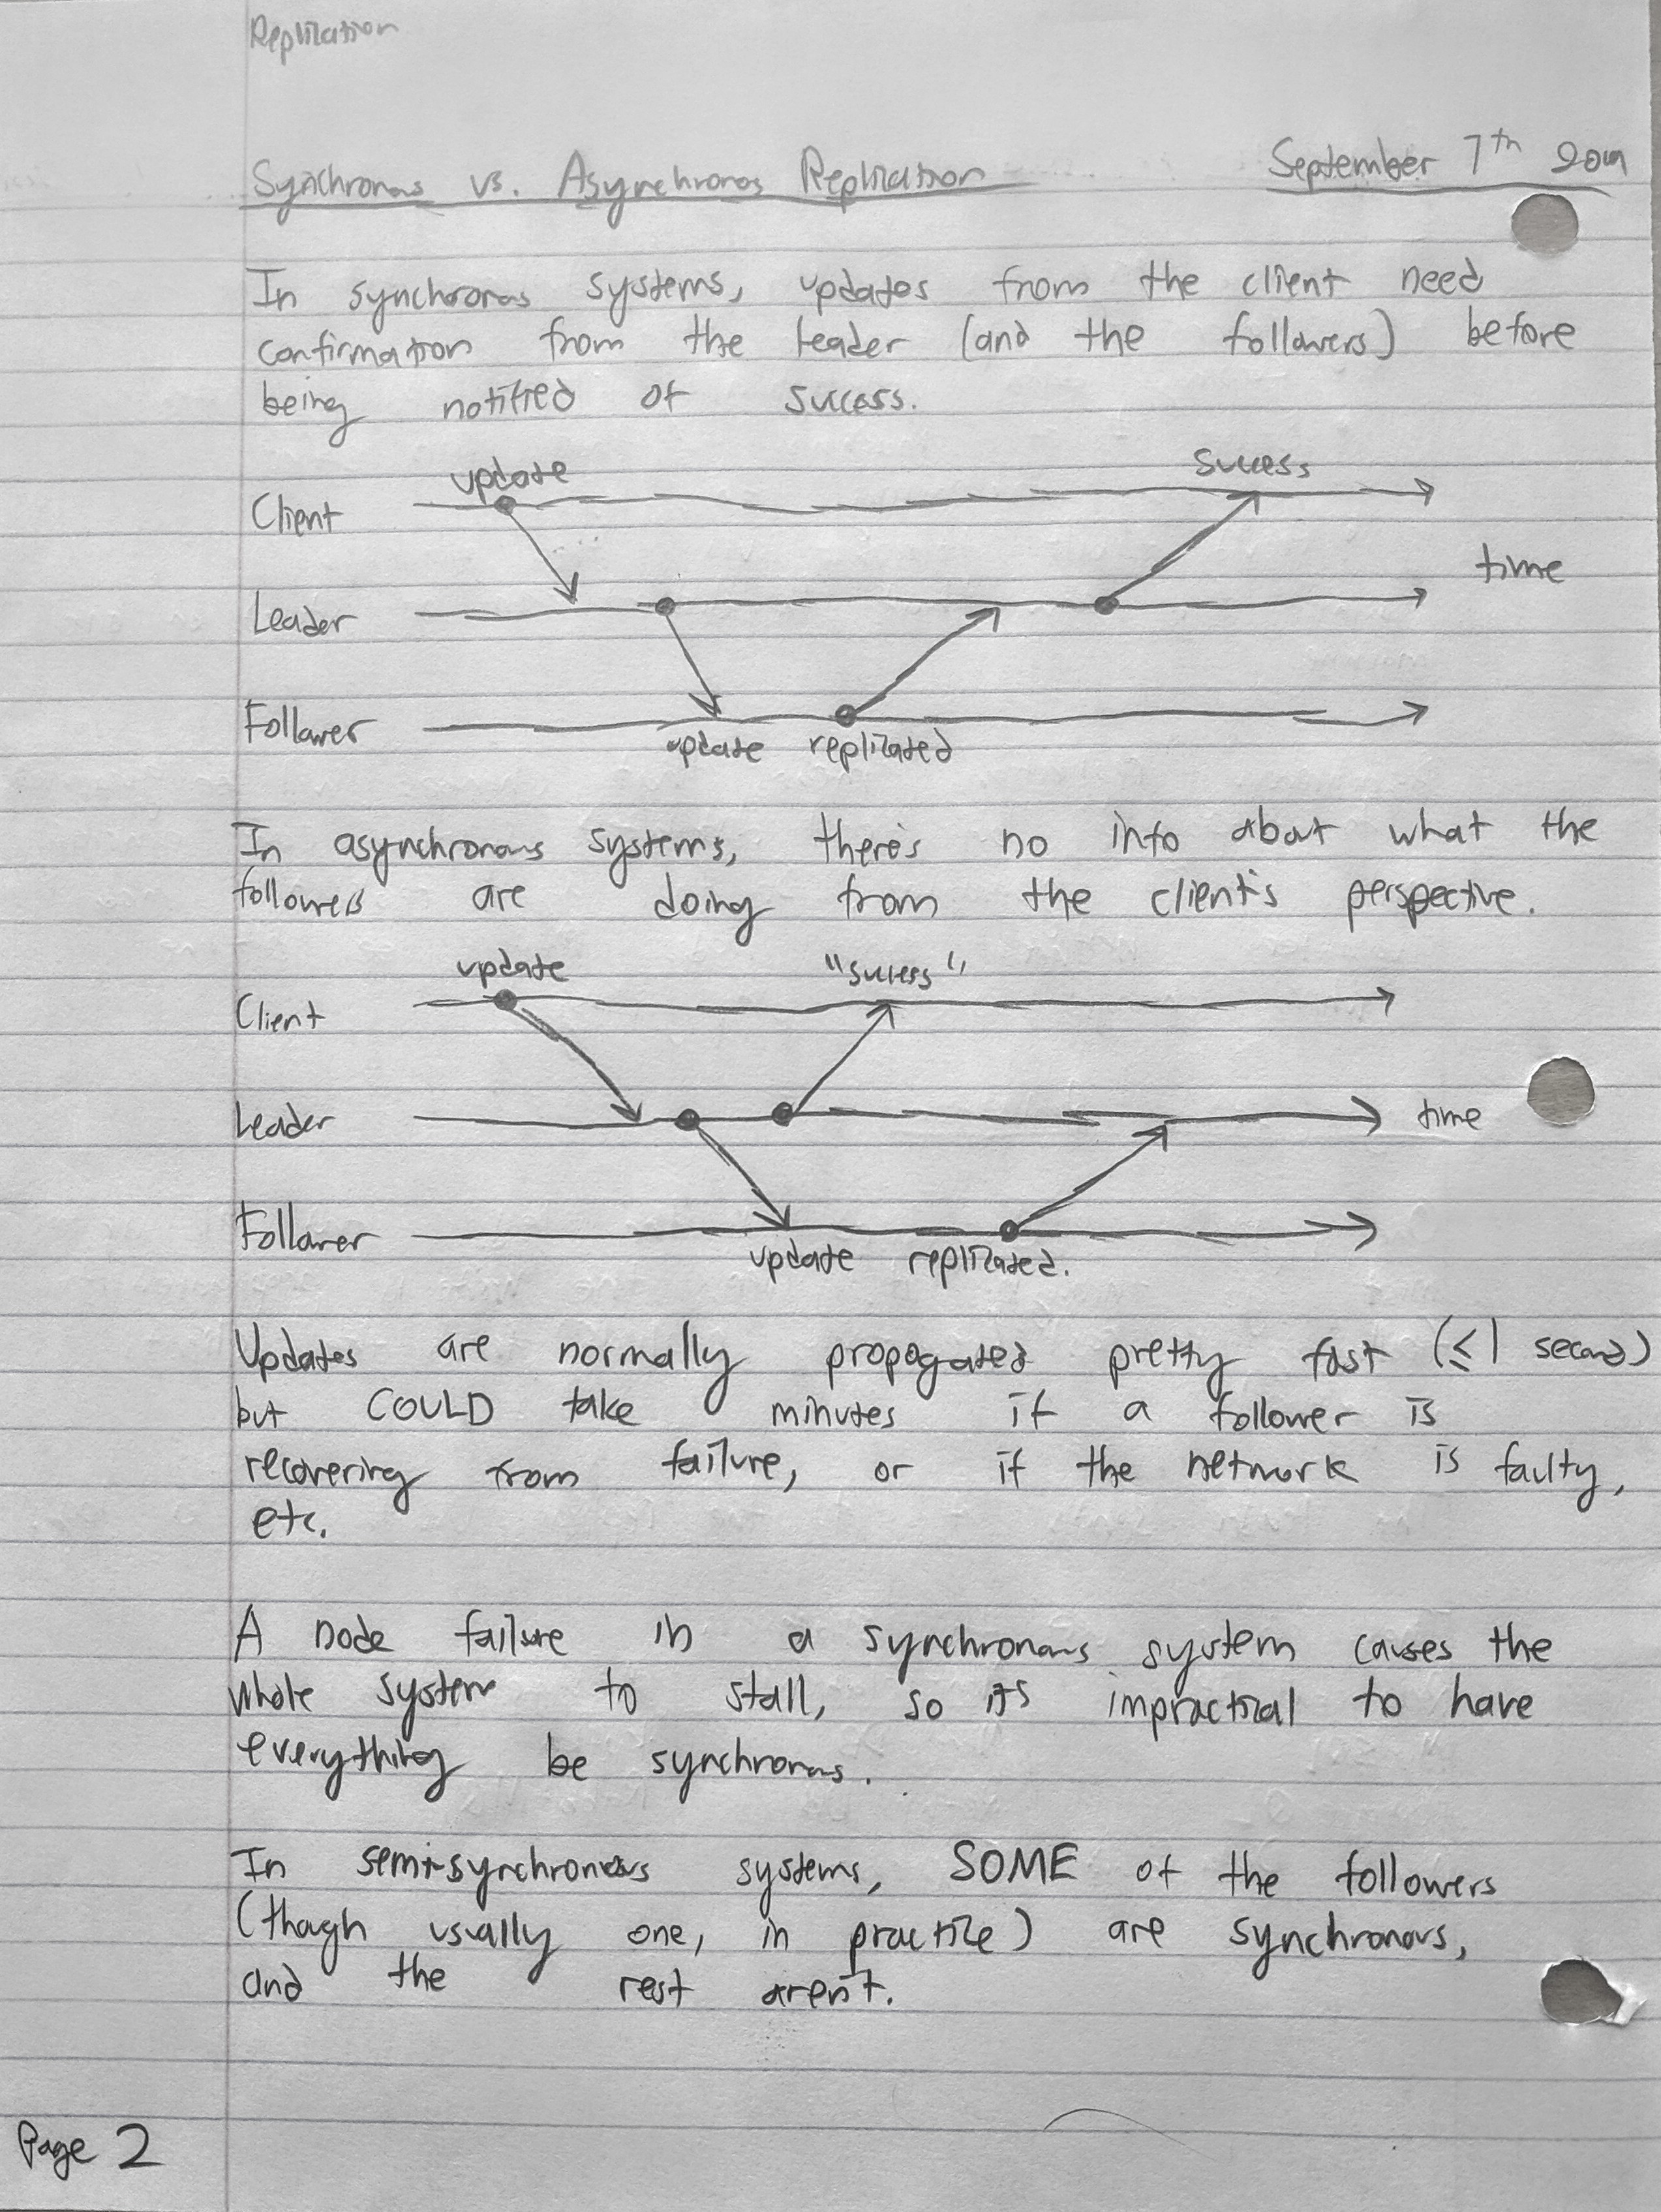 Replication
Synchronous vs. Asynchronos Replication
September 7th 2019
In synchronous systems, updates from the client need
confirmation from the leader (and the followers) before
being notified of success.
update
success
Client
time
Leader
Follower
update replicated
In asynchronous systems, there's no info about what the
followers are doing from the client's perspective.
update
"success"
Client
Leader
time
Follower
update replicated.
Updates are normally propogated pretty fast (≤1 second)
but COULD take minutes if a follower is
recovering from failure, or if the network is faulty,
etc.
A node failure in a synchronous system causes the
whole system to stall, so it's impractical to have
everything be synchronous.
In semi-synchronous systems, SOME of the followers
(though usually one, in practice) are synchronous,
and the rest aren't.
Page 2